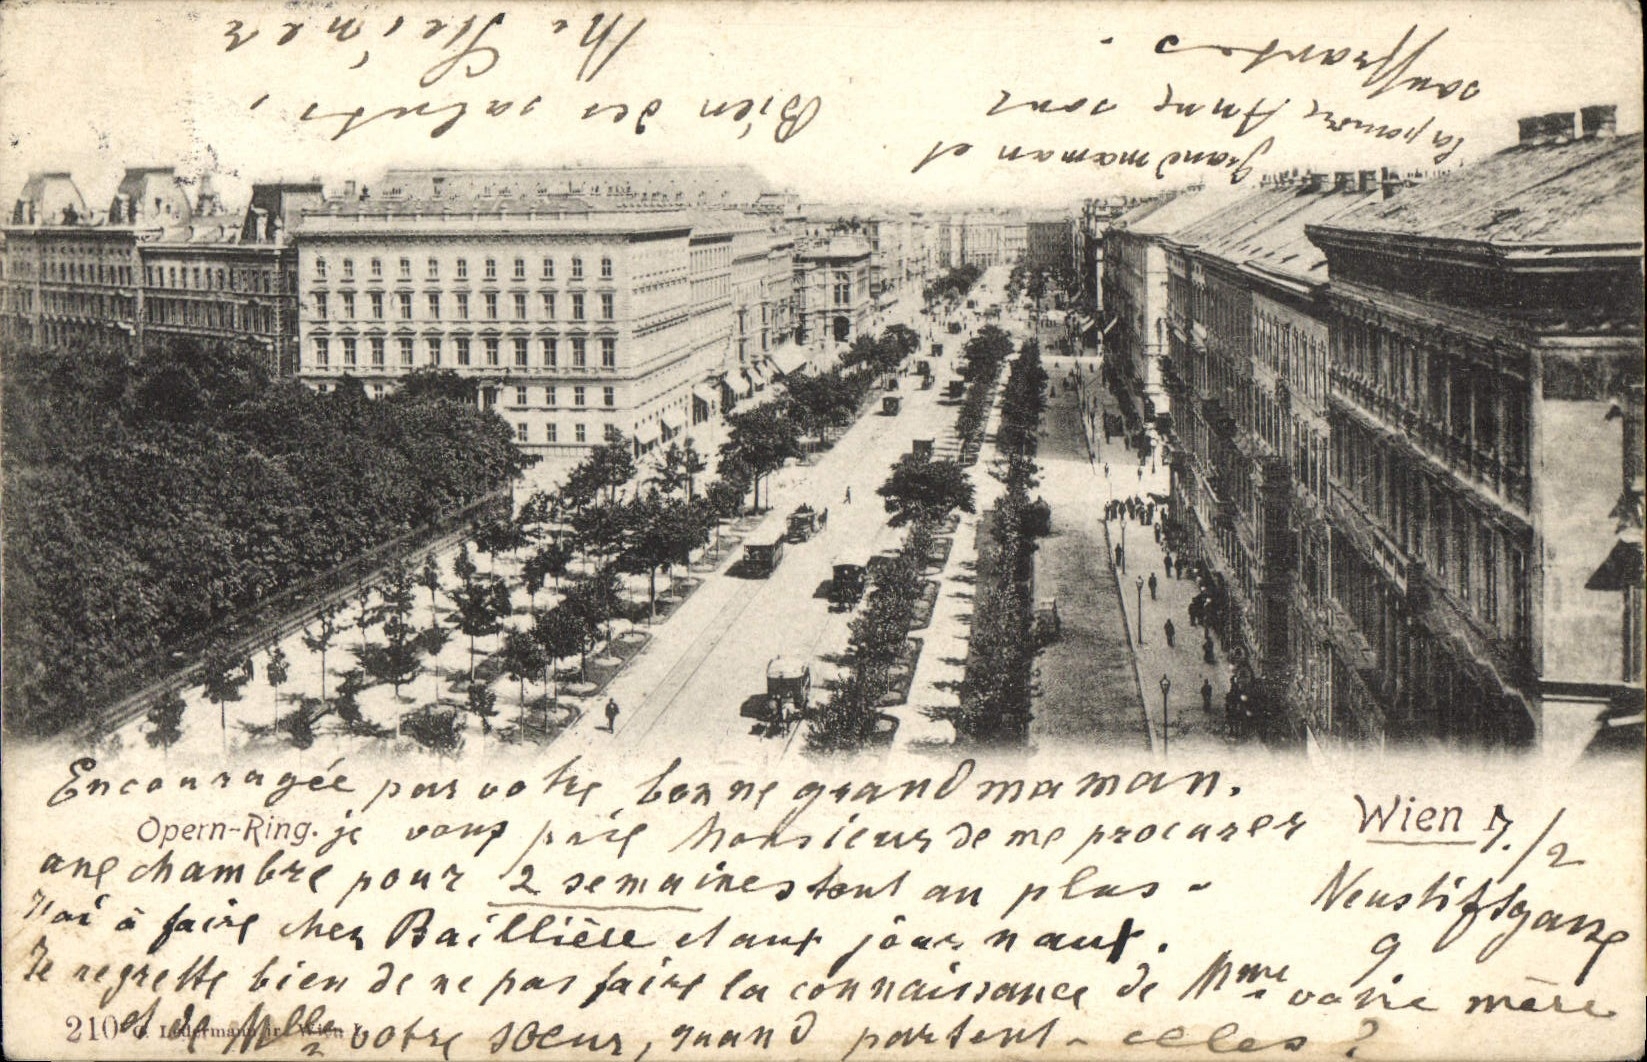 Encouragée par votre bonne grandmaman.
Opern-Ring. je vous prie Monsieur de me procurer
Wien 7./2
une chambre pour 2 semaines tout au plus -
Neustiftgasse
9.
J'ai à faire chez Baillière et aux journaux.
Je regrette bien de ne pas faire la connaissance de Mme votre mère
210 et de Mlle votre sœur, quand partent-elles?
Ledermann jr. Wien I.
Grandmaman et
la pauvre Anne sont
souffrantes.
Bien des saluts,